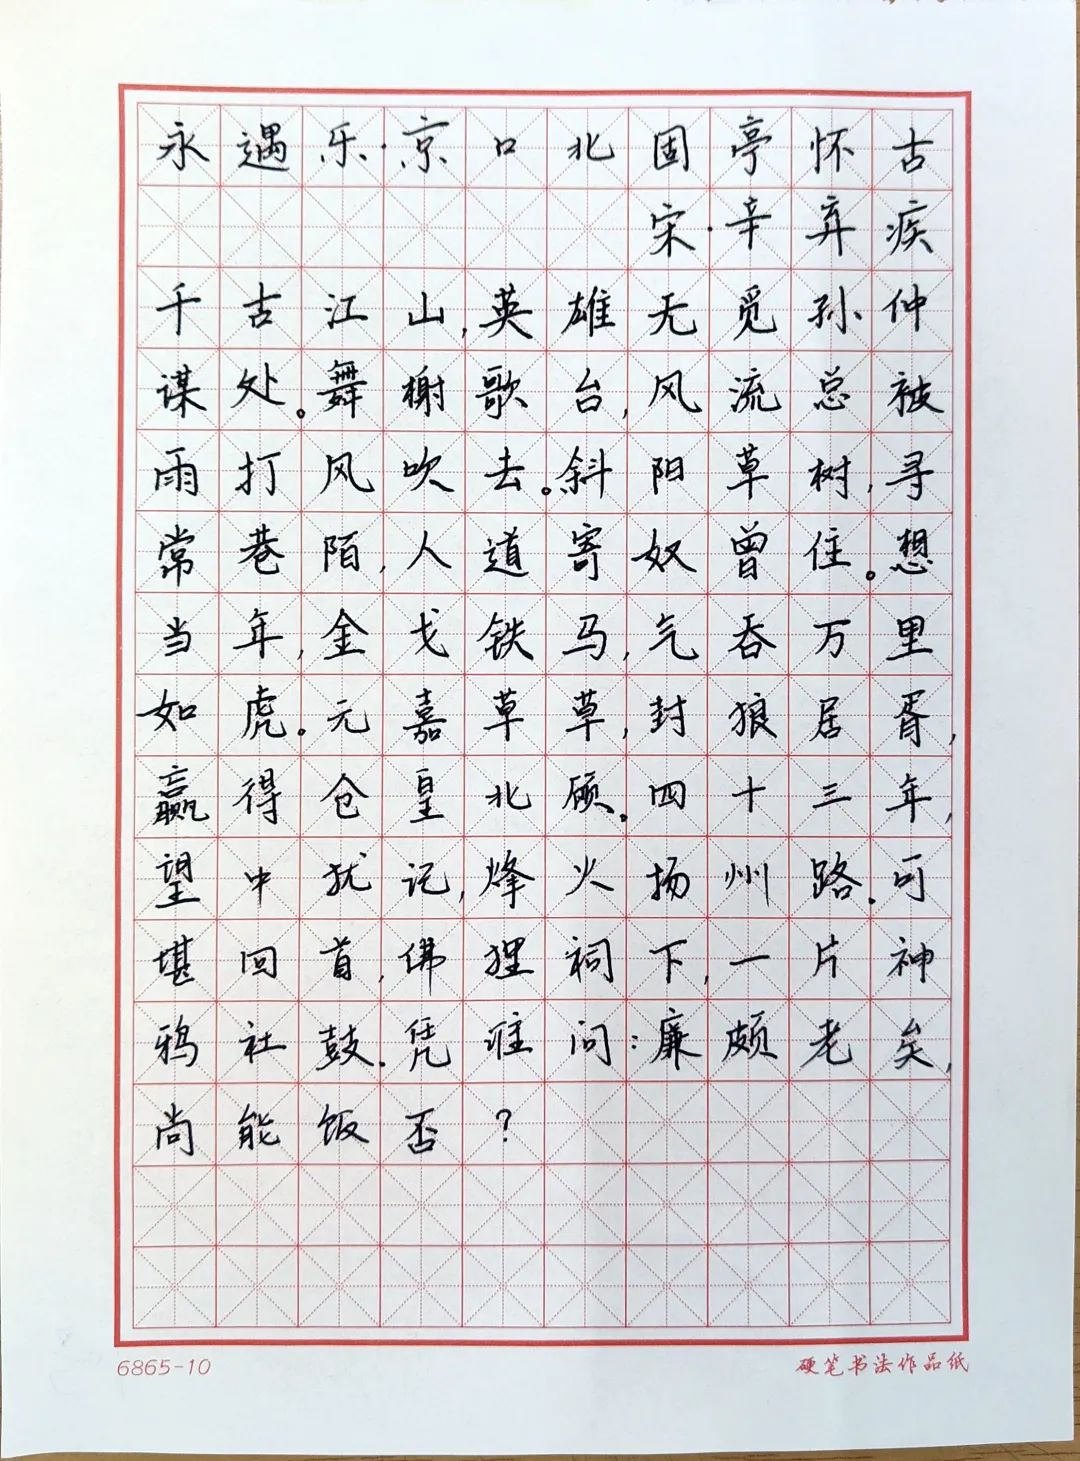 永遇乐·京口北固亭怀古
宋·辛弃疾
千古江山,英雄无觅孙仲
谋处。舞榭歌台,风流总被
雨打风吹去。斜阳草树,寻
常巷陌,人道寄奴曾住。想
当年,金戈铁马,气吞万里
如虎。元嘉草草,封狼居胥,
赢得仓皇北顾。四十三年,
望中犹记,烽火扬州路.可
堪回首,佛狸祠下,一片神
鸦社鼓.凭谁问:廉颇老矣,
尚能饭否?
6865-10
硬笔书法作品纸